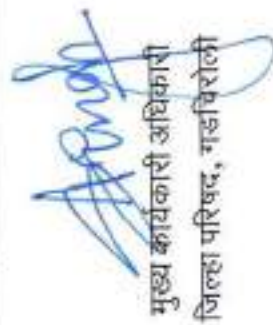 मुख्य कार्यकारी अधिकारी
जिल्हा परिषद, गडचिरोली